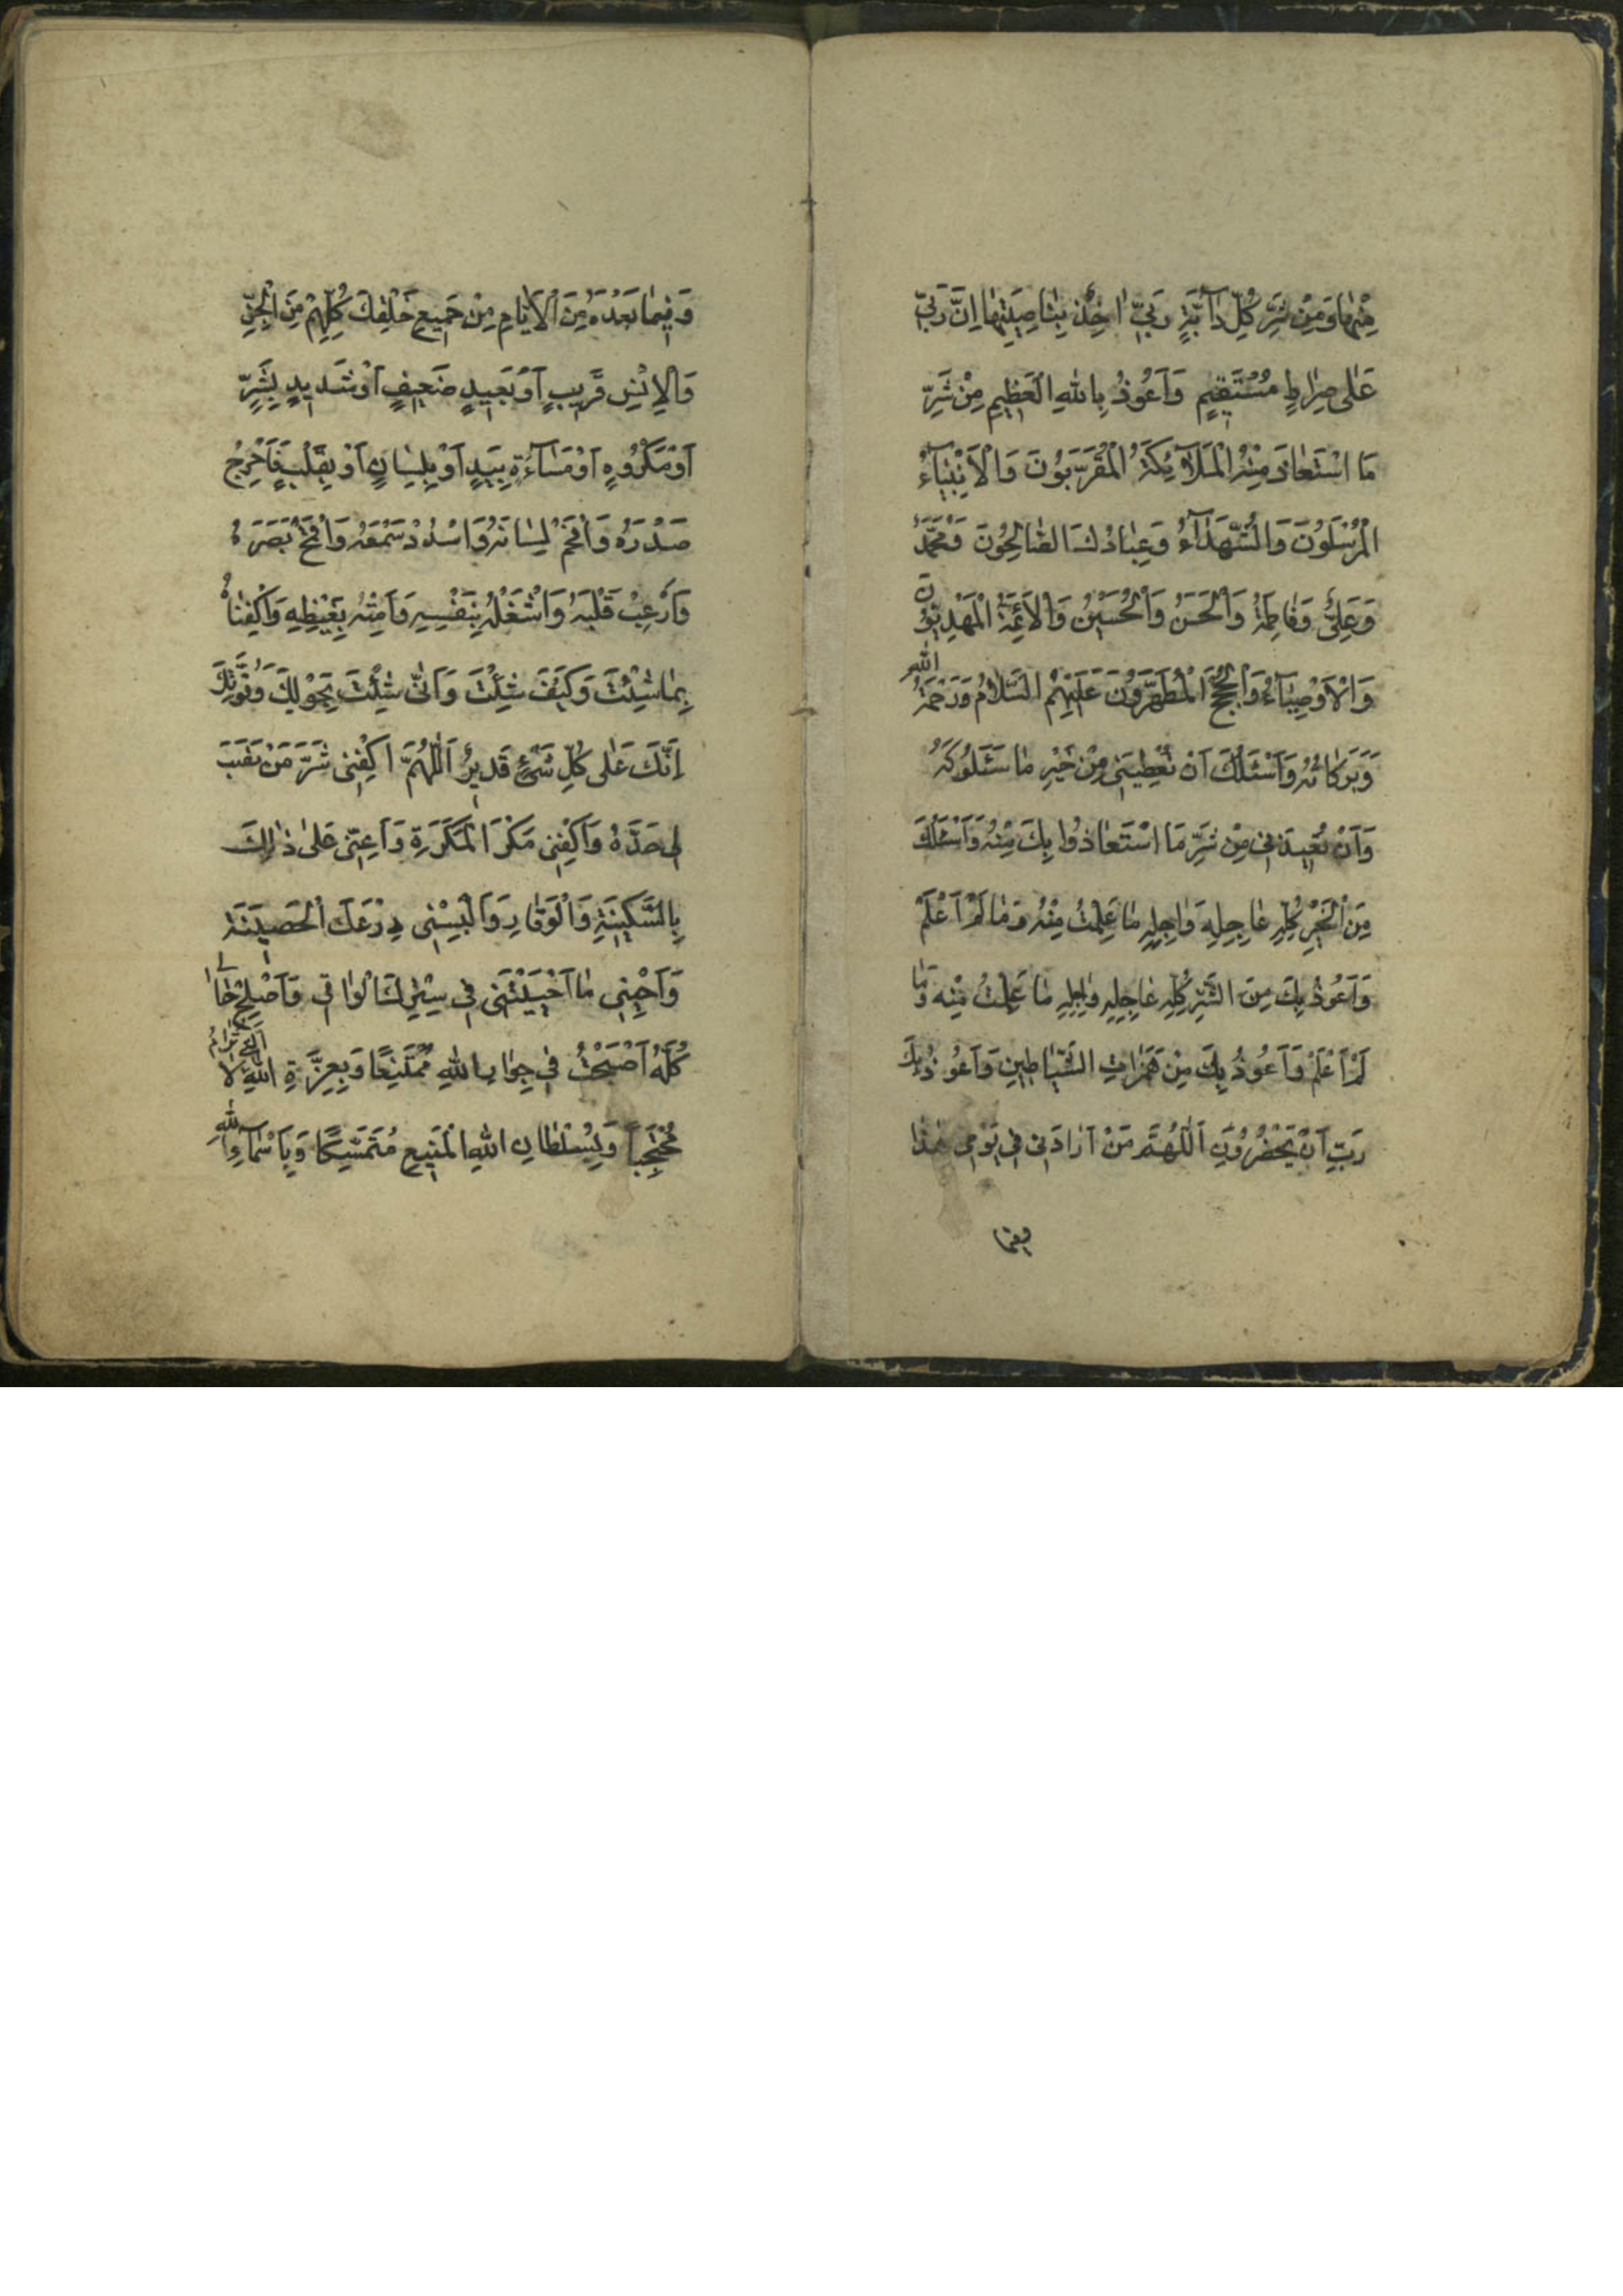 مِنْهٰا وَمِنْ شَرِّ كُلِّ دٰآبَّةٍ رَبّيٖ اٰخِذٌ بِنٰاصِيَتِهٰا اِنَّ رَبّيٖ
عَلٰى صِرٰاطٍ مُسْتَقيٖمٍ وَاَعُوذُ بِاللّٰهِ الْعَظيٖمِ مِنْ شَرِّ
مَا اسْتَعٰاذَ مِنْهُ الْمَلٰآئِكَةُ الْمُقَرَّبُونَ وَالْاَنْبِيٰآءُ
الْمُرْسَلُونَ وَالشُّهَدٰآءُ وَعِبٰادُكَ الصّٰالِحُونَ وَمُحَمَّدٌ
وَعَلِيٌّ وَفٰاطِمَةُ وَالْحَسَنُ وَالْحُسَيْنُ وَالْاَئِمَّةُ الْمَهْدِيُّونَ
وَالْاَوْصِيٰآءُ وَالْحُجَجُ الْمُطَهَّرُونَ عَلَيْهِمُ السَّلٰامُ وَرَحْمَةُ اللّٰهِ
وَبَرَكٰاتُهُ وَاَسْئَلُكَ اَنْ تُعْطِيَنيٖ مِنْ خَيْرِ مٰا سَئَلُوكَهُ
وَاَنْ تُعيٖذَنيٖ مِنْ شَرِّ مَا اسْتَعٰاذُوا بِكَ مِنْهُ وَاَسْئَلُكَ
مِنَ الْخَيْرِ كُلِّهِ عٰاجِلِهِ وَاٰجِلِهِ مٰا عَلِمْتُ مِنْهُ وَمٰا لَمْ اَعْلَمْ
وَاَعُوذُ بِكَ مِنَ الشَّرِّ كُلِّهِ عٰاجِلِهِ وَاٰجِلِهِ مٰا عَلِمْتُ مِنْهُ وَمٰا
لَمْ اَعْلَمْ وَاَعُوذُ بِكَ مِنْ هَمَزٰاتِ الشَّيٰاطيٖنِ وَاَعُوذُ بِكَ
رَبِّ اَنْ يَحْضُرُونِ اَللّٰهُمَّ مَنْ اَرٰادَنيٖ فيٖ يَوْميٖ هٰذٰا
وفيما
وَفيٖمٰا بَعْدَهُ مِنَ الْاَيّٰامِ مِنْ جَميٖعِ خَلْقِكَ كُلِّهِمْ مِنَ الْجِنِّ
وَالْاِنْسِ قَريٖبٍ اَوْ بَعيٖدٍ ضَعيٖفٍ اَوْ شَديٖدٍ بِشَرٍّ
اَوْ مَكْرُوهٍ اَوْ مَسٰآءَةٍ بِيَدٍ اَوْ بِلِسٰانٍ اَوْ بِقَلْبٍ فَاَحْرِجْ
صَدْرَهُ وَاَفْحِمْ لِسٰانَهُ وَاسْدُدْ سَمْعَهُ وَاقْمَحْ بَصَرَهُ
وَاَرْعِبْ قَلْبَهُ وَاشْغَلْهُ بِنَفْسِهِ وَاَمِتْهُ بِغَيْظِهِ وَاكْفِنٰاهُ
بِمٰا شِئْتَ وَكَيْفَ شِئْتَ وَاَنّٰى شِئْتَ بِحَوْلِكَ وَقُوَّتِكَ
اِنَّكَ عَلٰى كُلِّ شَيْءٍ قَديٖرٌ اَللّٰهُمَّ اكْفِنيٖ شَرَّ مَنْ نَصَبَ
ليٖ حَدَّهُ وَاكْفِنيٖ مَكْرَ الْمَكَرَةِ وَاَعِنّيٖ عَلٰى ذٰلِكَ
بِالسَّكيٖنَةِ وَالْوَقٰارِ وَاَلْبِسْنيٖ دِرْعَكَ الْحَصيٖنَةَ
وَاَحْيِنيٖ مٰا اَحْيَيْتَنيٖ فيٖ سِتْرِكَ الْوٰاقيٖ وَاَصْلِحْ حٰاليٖ
كُلَّهُ اَصْبَحْتُ فيٖ جِوٰارِ اللّٰهِ مُمْتَنِعًا وَبِعِزَّةِ اللّٰهِ الَّتيٖ لٰا تُرٰامُ
مُحْتَجِبًا وَبِسُلْطٰانِ اللّٰهِ الْمَنيٖعِ مُتَمَسِّكًا وَبِاَسْمٰآءِ اللّٰهِ